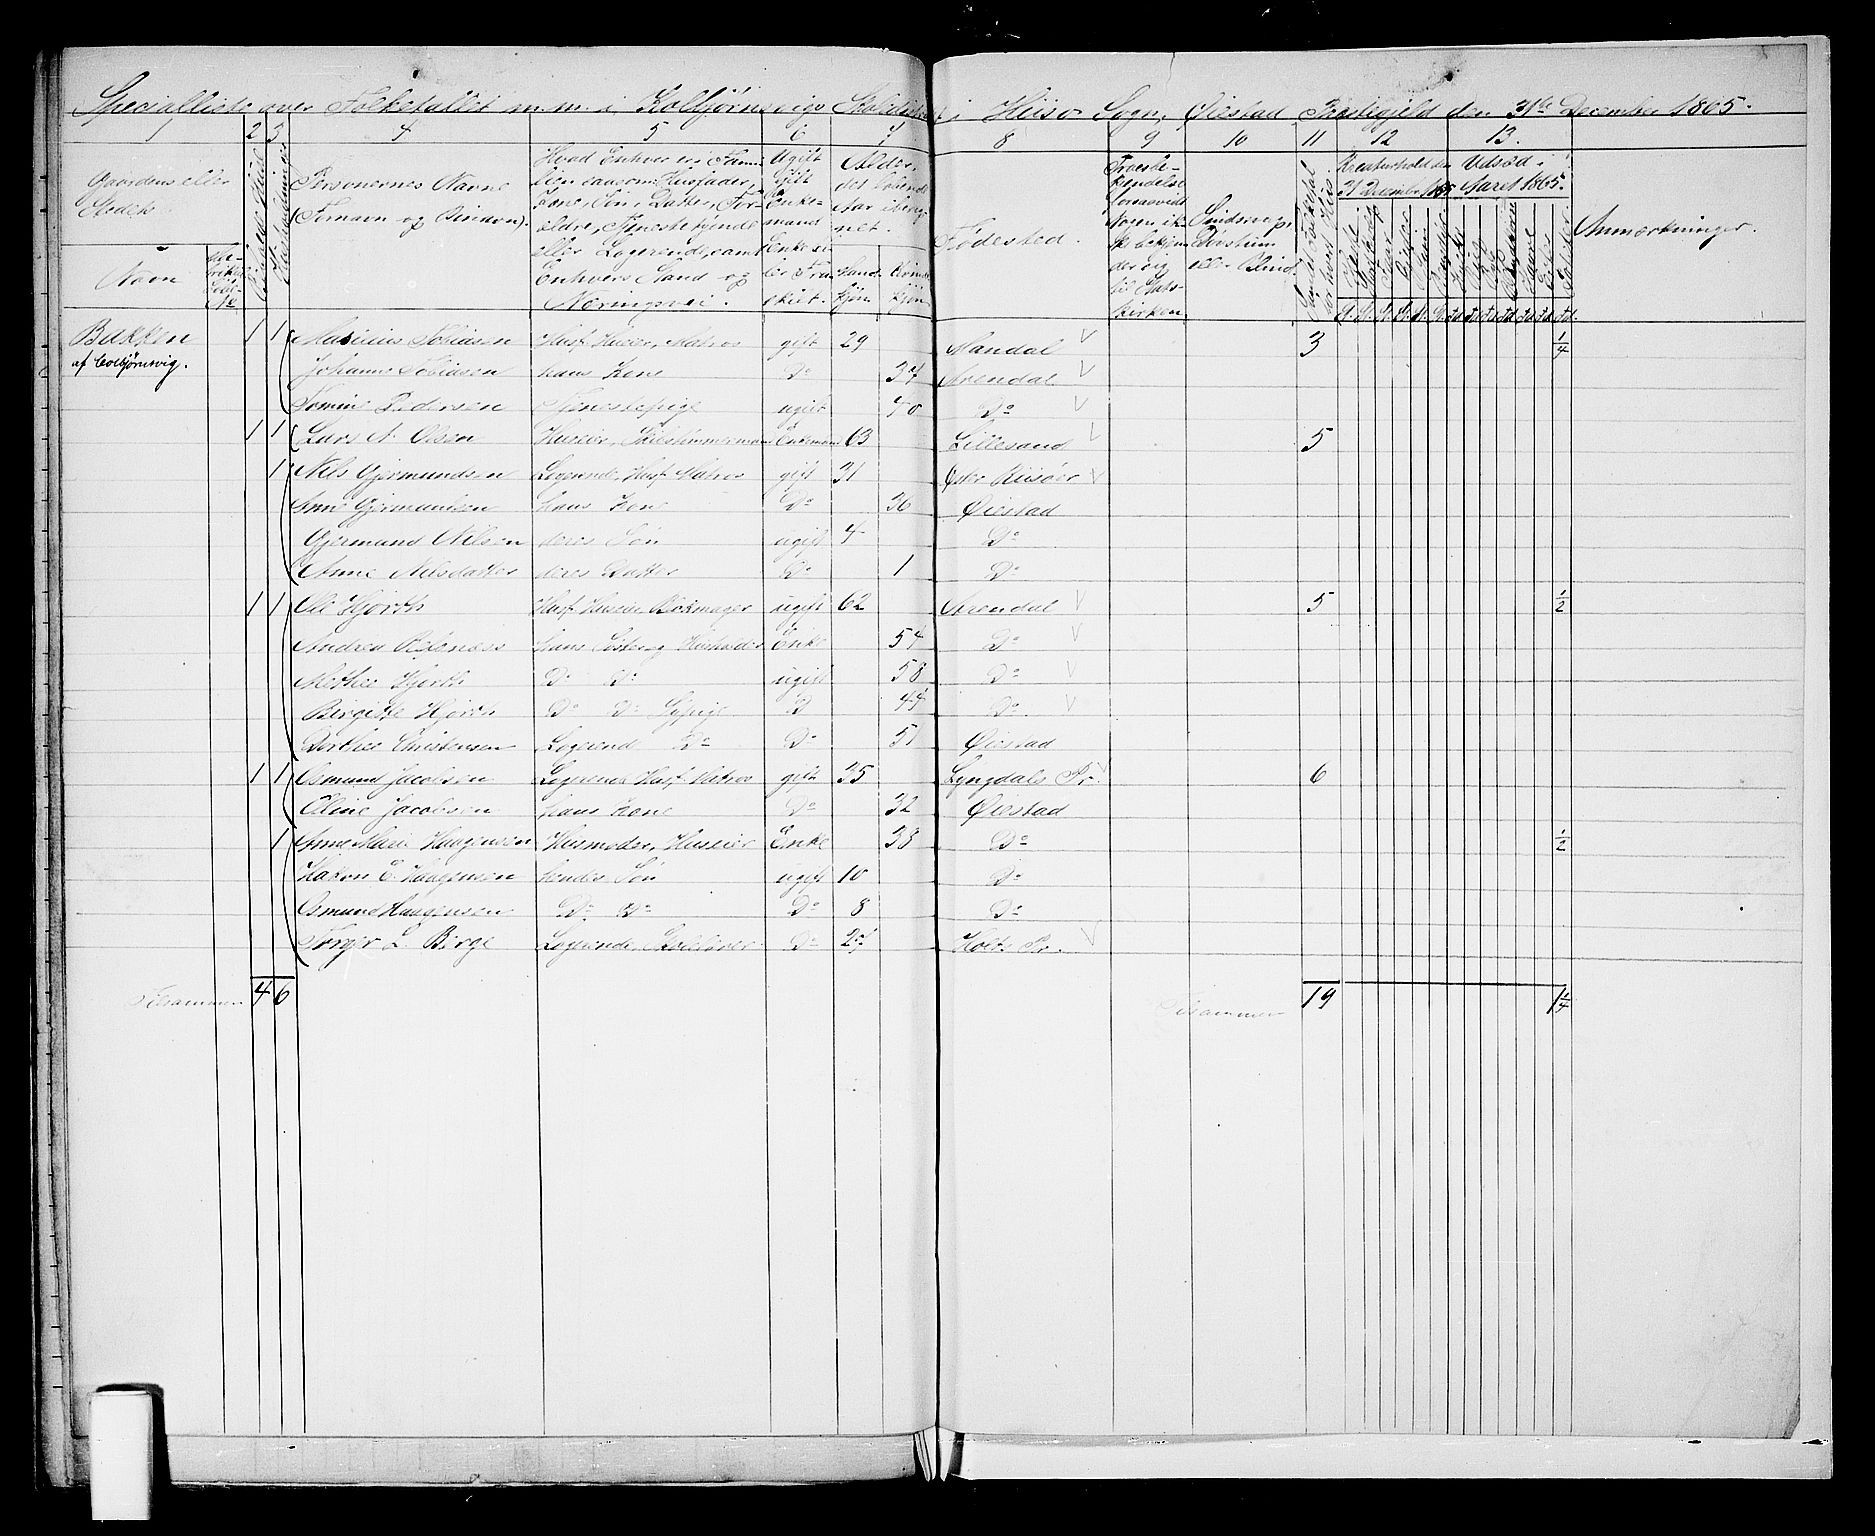 Specialliste over Folketallet m. m. i Kolbjørnsvigs Skoledistrikt i Hiisø Sogn, Øiestad Præstegjeld den 31te December 1865.
1 2 3 4 5 6 7 8 9 10 11 12 13
Gaardens eller Stedets
Navn
Personernes Navne (Fornavn og Tilnavn).
Hvad Enhver er i Familien saasom: Husfader, Kone, Søn, Datter, Forældre, Tjenestetyende eller Logerende, samt Enhvers Stand og Næringsvei.
Ugift gift Enkemand Enke eller Fraskilt.
Alder, det løbende Aar iberegnet.
Mandkjøn Kvindekjøn
Fødested.
Troesbekjendelse forsaavidt Nogen ikke bekjender sig til Statskirken
Sindssvage, Døvstum eller Blind
Kreaturhold den 31 December 1865
Udsæd i Aaret 1865
Anmærkninger.
Bakken 1 1 Masinius Tobiasen Husf. Huseier, Matros gift 29 Mandal V 3 1/4
af Colbjørnsvig. Johanne Tobiasen hans Kone Do 34 Arendal V
Tomine Pedersen Tjenestepige ugift 40 Do V
1 1 Lars N. Olsen Huseier, Skibstømmermand Enkemand 63 Lillesand V 5
1 Nils Gjermundsen Logerende, Husf. Matros gift 31 Øster Riisøer V
Anne Gjermundsen hans Kone Do 36 Øiestad
Gjermund Nilsen deres Søn ugift 4 Do
Anne Nilsdatter deres Datter Do 1 Do
1 1 Ole Hjorth Husf. Huseier Blokmager ugift 62 Arendal V 5 1/2
Andrea hans Søster og Husholder Enke 54 Do V
Methee Hjorth Do Do ugift 58 Do V
Birgitte Hjorth Do Do Sypige D 44 Do V
Dorthee Christensen Logerend Do Do 51 Øiestad
1 1 Osmund Jacobsen Logerende Husf, Matros gift 35 Lyngdals Pr. V 6
Eline Jacobsen hans Kone Do 32 Øiestad
1 Anne Marie Haagensen Husmoder, Huseier Enke 38 Do 1/2
Hakon E. Haagensen hendes Søn ugift 10 Do
Osmund Haagensen Do Do Do 8 Do
Torger L. Berge Logerende, Skolelærer Do 24 Holts Pr. V
Tilsammen 4 6 Tilsammen 19 1 1/4